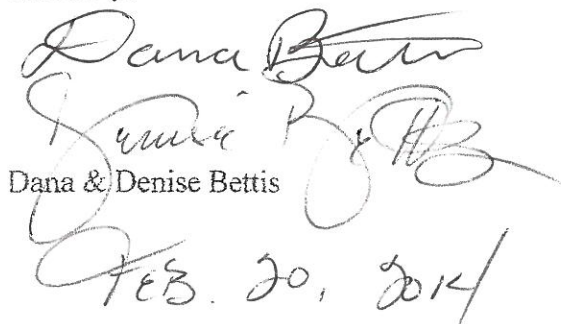 Dana Bettis
Denise Bettis
Dana & Denise Bettis
FEB. 20, 2014